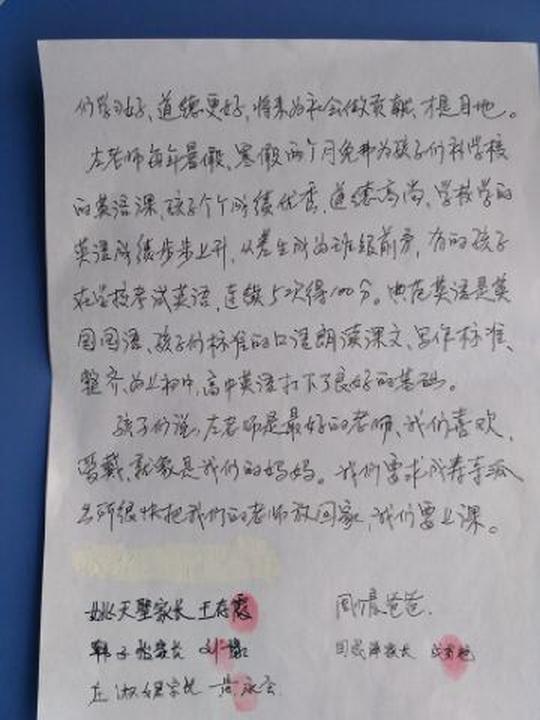 们学习好，道德更好，将来为社会做贡献，才是目地。
左老师每年暑假、寒假两个月免费为孩子们补学校
的英语课，孩子个个成绩优秀，道德高尚，学校学的
英语成绩步步上升，从差生成为班级前茅，有的孩子
在学校考试英语，连续5次得100分。典范英语是英
国国语、孩子们标准的口语朗读课文、写作标准、
整齐，为上初中，高中英语打下了良好的基础。
孩子们说，左老师是最好的老师、我们喜欢，
爱戴，就象是我们的妈妈。我们要求
所很快把我们的老师放回家，我们要上课。
姚天 家长 王存霞
爸爸.
韩子 家长 刘
家长
左淑 家长 永会